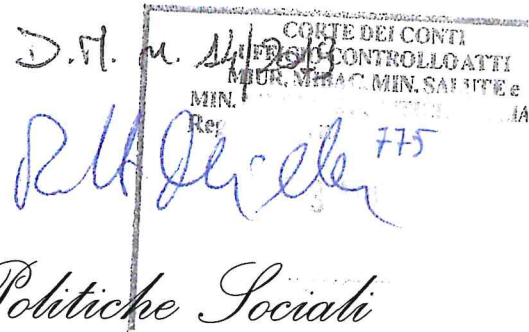 D.M. n. 14/2013
CORTE DEI CONTI
UFFICIO CONTROLLO ATTI
MIUR, MIBAC, MIN. SALUTE e
MIN.
Reg
775
Politiche Sociali